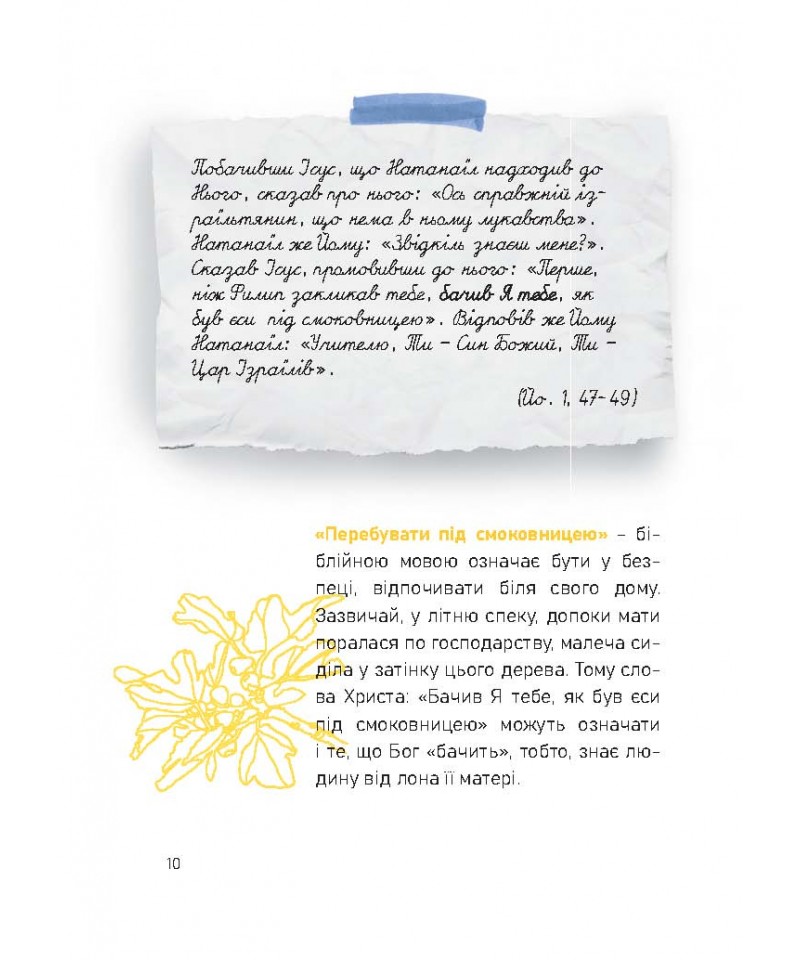 Побачивши Ісус, що Натанаїл надходив до
Нього, сказав про нього: «Ось справжній із-
раїльтянин, що нема в ньому лукавства».
Натанаїл же Йому: «Звідкіль знаєш мене?».
Сказав Ісус, промовивши до нього: «Перше,
ніж Филип закликав тебе, бачив Я тебе, як
був єси під смоковницею». Відповів же Йому
Натанаїл: «Учителю, Ти – Син Божий, Ти –
Цар Ізраїлів».
(Йо. 1, 47-49)
«Перебувати під смоковницею» – бі-
блійною мовою означає бути у без-
пеці, відпочивати біля свого дому.
Зазвичай, у літню спеку, допоки мати
поралася по господарству, малеча си-
діла у затінку цього дерева. Тому сло-
ва Христа: «Бачив Я тебе, як був єси
під смоковницею» можуть означати
і те, що Бог «бачить», тобто, знає лю-
дину від лона її матері.
10